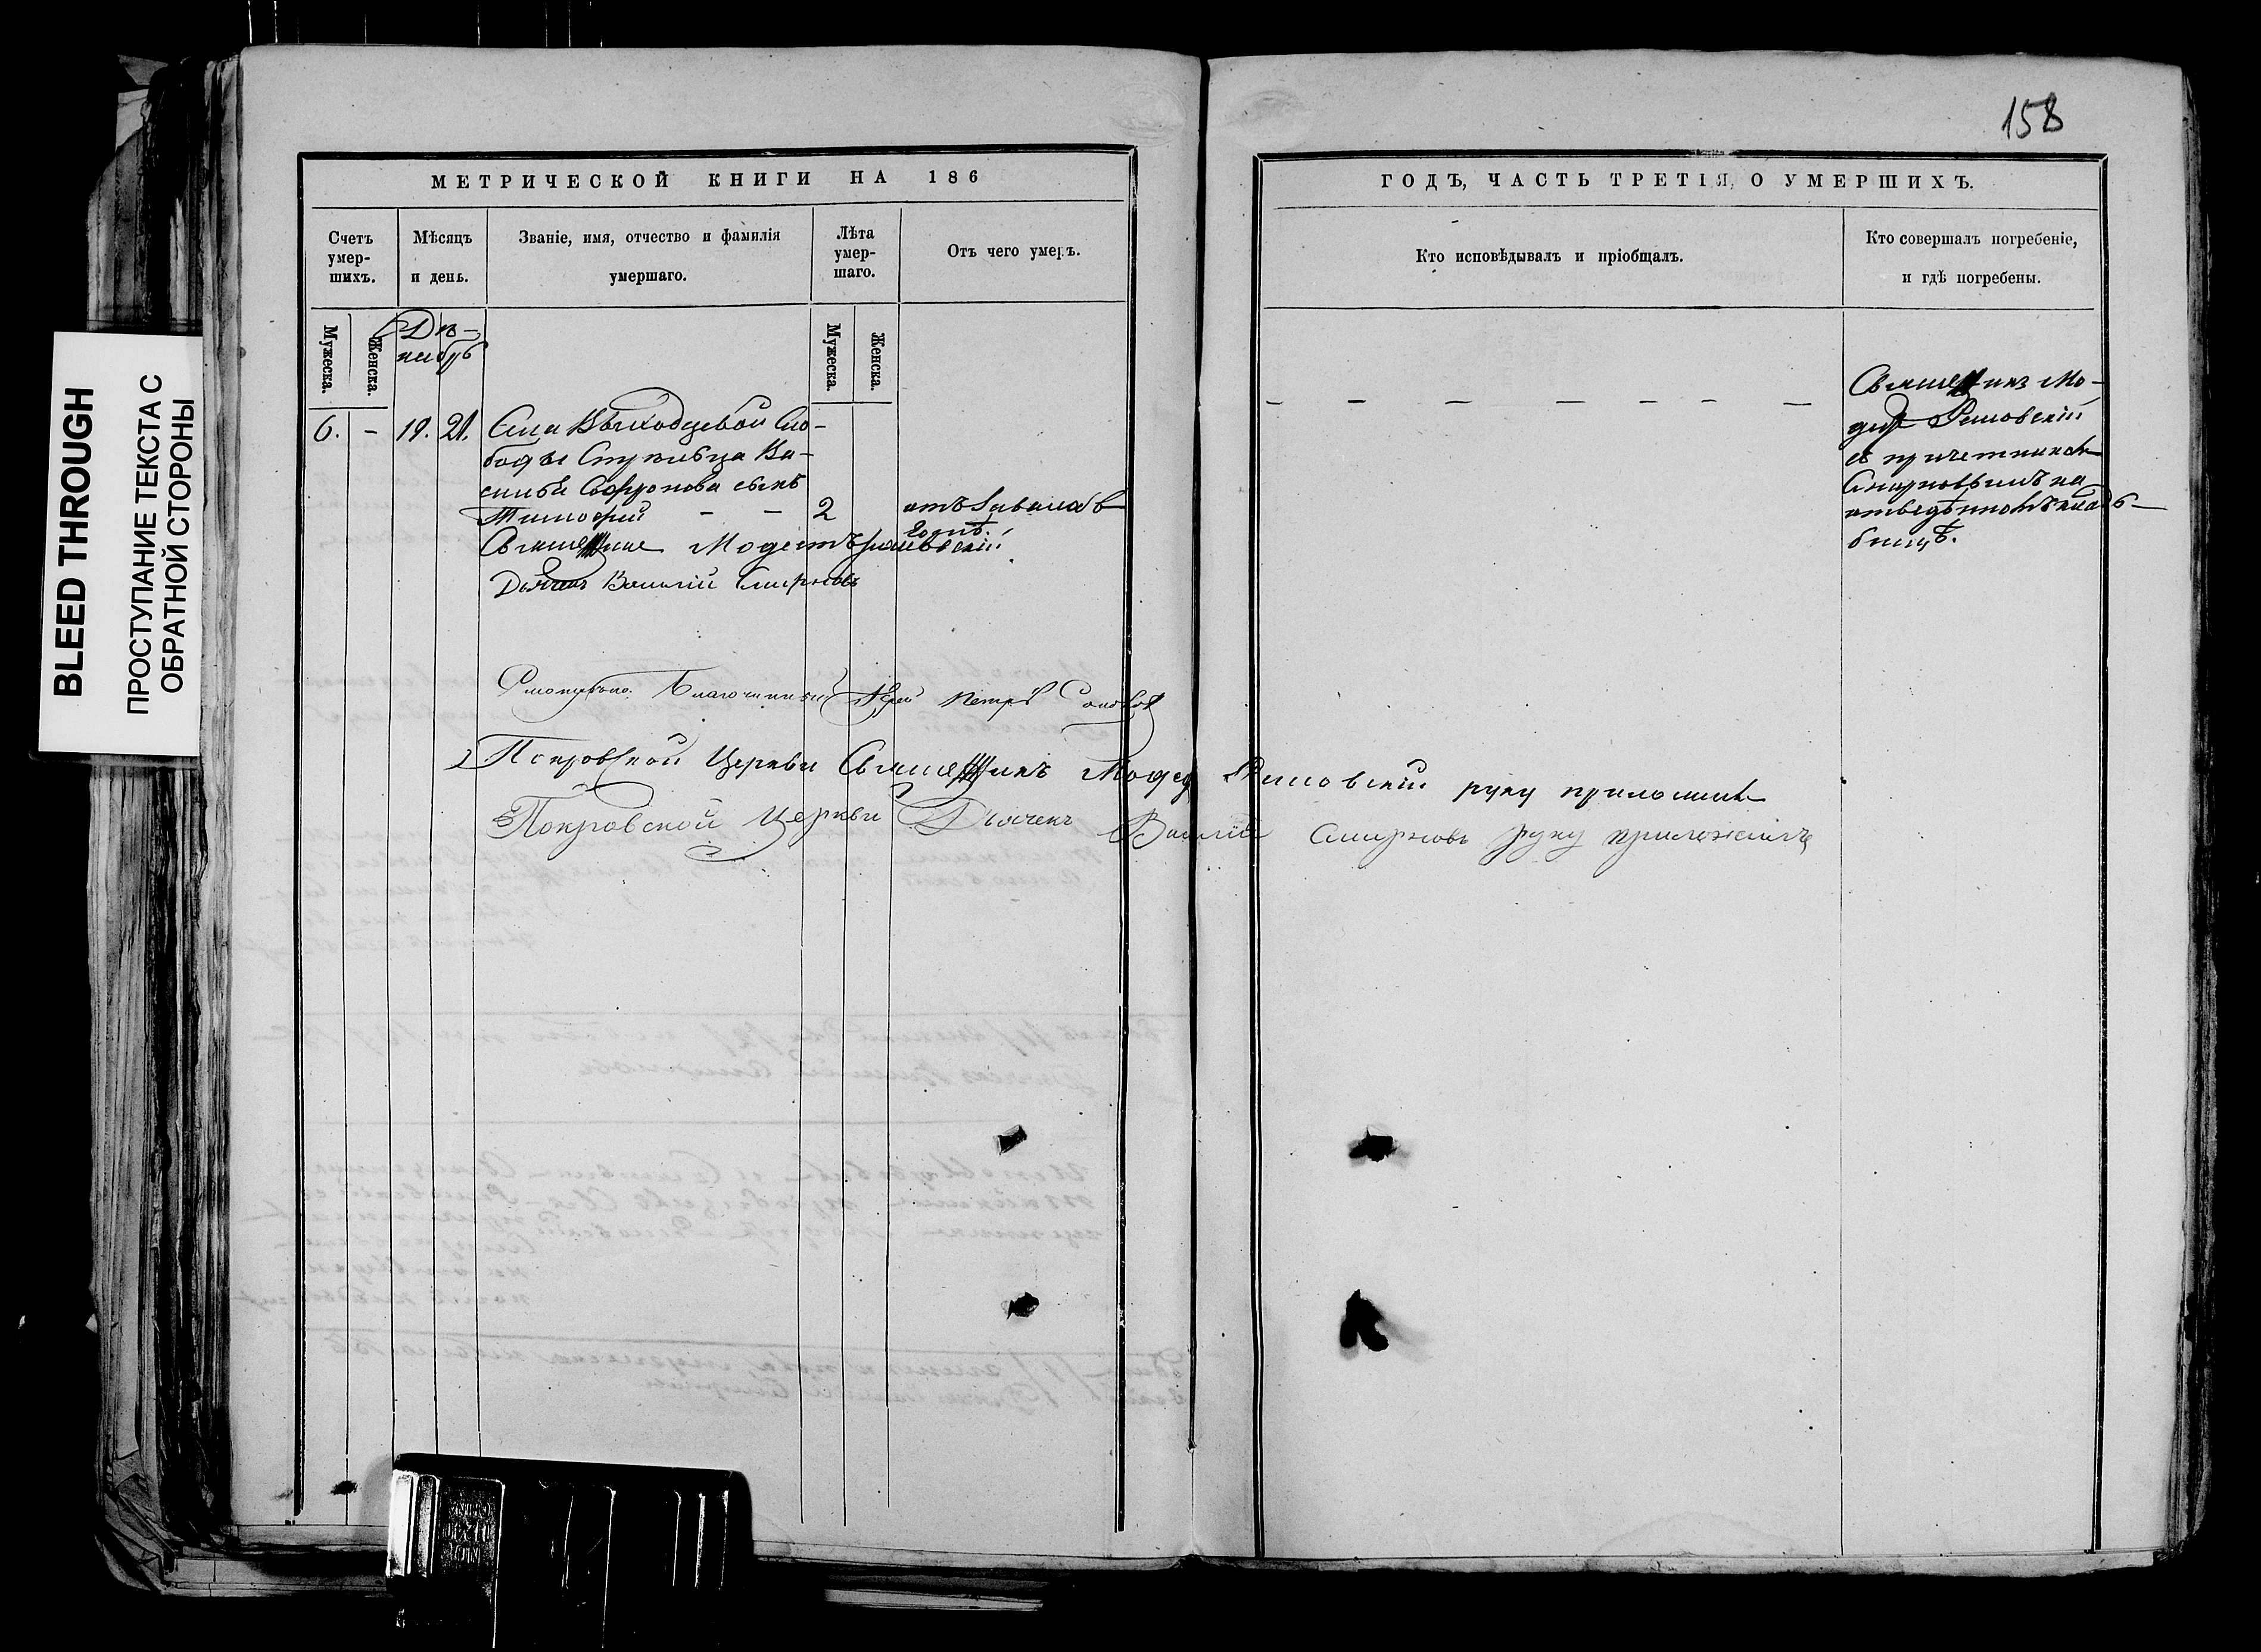 158
МЕТРИЧЕСКОЙ КНИГИ НА 186
ГОДЪ, ЧАСТЬ ТРЕТІЯ, О УМЕРШИХЪ.
Счетъ умер-
шихъ.
Мѣсяцъ
и день.
Званіе, имя, отчество и фамилія
умершаго.
Лѣта
умер-
шаго.
Отъ чего умеръ.
Кто исповѣдывалъ и пріобщалъ.
Кто совершалъ погребеніе,
и гдѣ погребены.
Мужеска.
Женска.
Де-
кабрь
Мужеска.
Женска.
6. - 19. 21.
Села Выходцевой Сло-
боды
Ва-
силья Софронова сынъ
Тимофей - - 2
отъ
Священникъ Модестъ
Дьячекъ Василій Смирновъ
Священникъ Мо-
дестъ
съ причетникомъ
Смирновымъ на
отведенномъ клад-
бищѣ.
Благочинный Іерей Петръ
Покровской Церкви Священникъ Модестъ руку приложилъ
Покровской Церкви Дьячекъ Василій Смирновъ руку приложилъ
BLEED THROUGH
ПРОСТУПАНИЕ ТЕКСТА С
ОБРАТНОЙ СТОРОНЫ